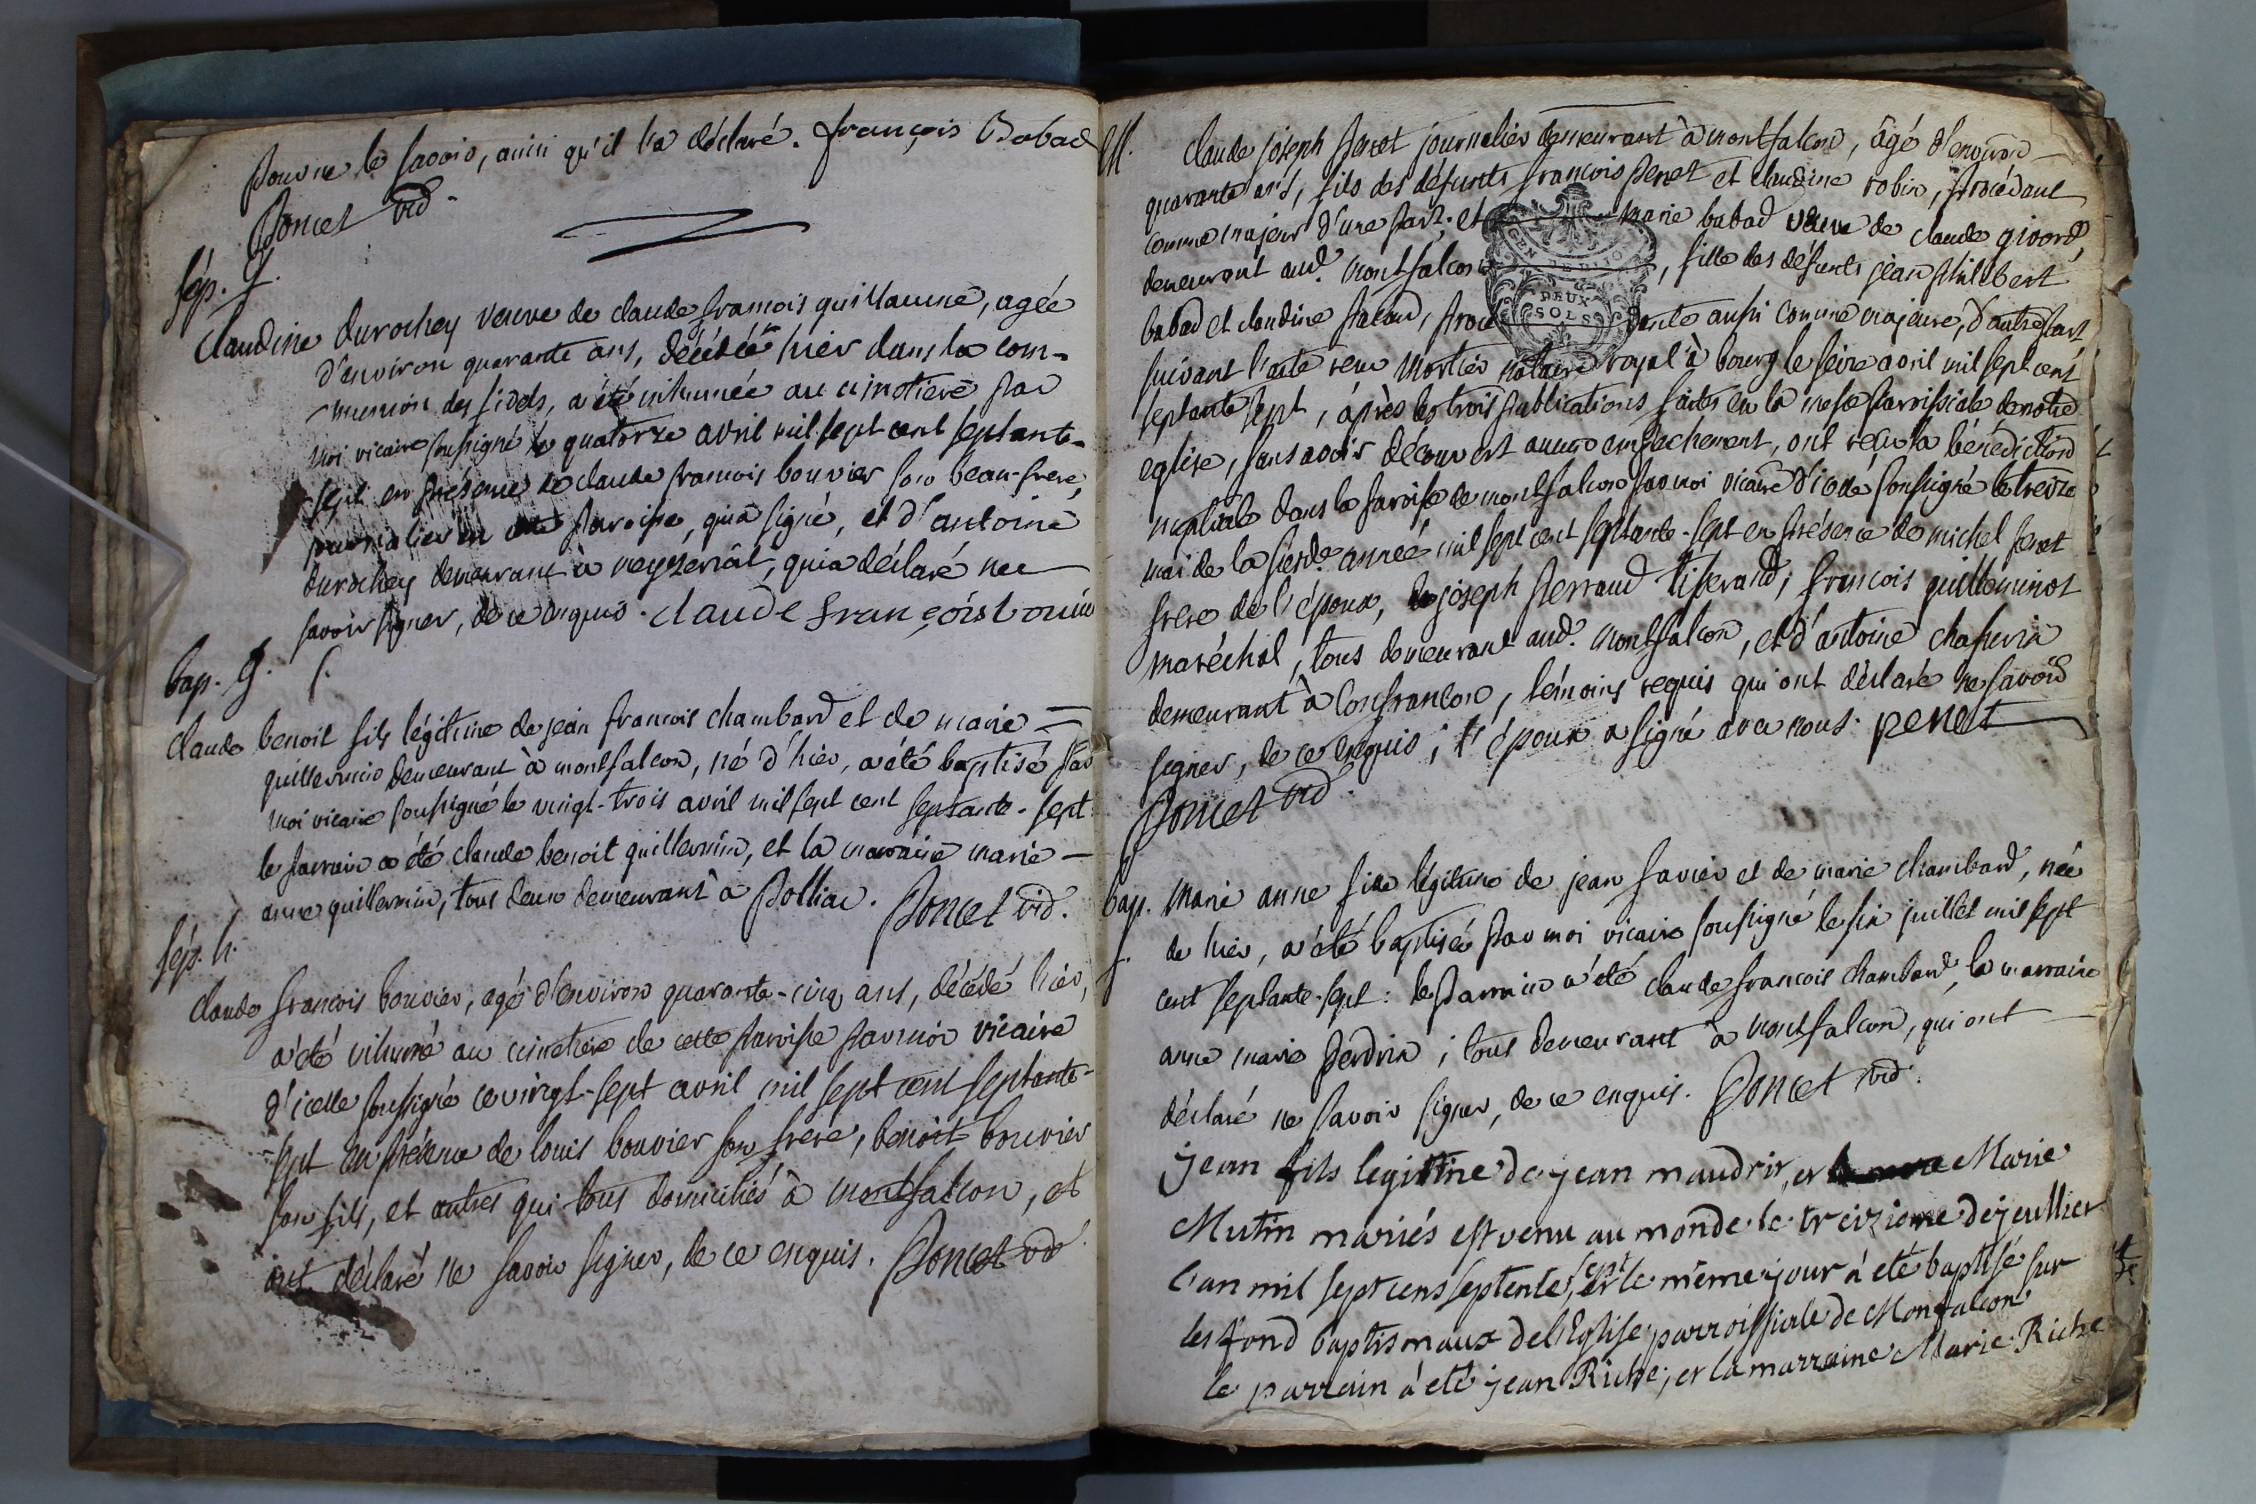 pour ne le savoir, ainsi qu'il l'a déclaré. françois Babad
Poncet vic.
sép. g.
Claudine durochey veuve de claude francois guillaume, agée
d'environ quarante ans, décédée hier dans la com-
munion des fidels, a été inhumée au cimetiere par
moi vicaire soussigné le quatorze avril mil sept cent septante-
sept en présence de claude francois bouvier son beau-frere,
journalier en cette paroisse, qui a signé, et d'antoine
durochey demeurant à neyzeriat, qui a déclaré ne
savoir signer, de ce enquis. claude françois bouvie
bap. g. f.
claude benoit fils légitime de jean francois chambard et de marie
guillermin demeurant à montfalcon, né d'hier, a été baptisé par
moi vicaire soussigné le vingt-trois avril mil sept cent septante-sept
le parrain a été claude benoit guillermin, et la marraine marie
anne guillermin, tous deux demeurant à Polliac. Poncet vic.
sép. h.
claude francois bouvier, agé d'environ quarante-cinq ans, décédé hier,
a été inhumé au cimetiere de cette paroisse par moi vicaire
d'icelle soussigné ce vingt-sept avril mil sept cent septante-
sept en présence de louis bouvier son frere, benoit bouvier
son fils, et autres qui tous domiciliés à montfalcon, et
ont déclaré ne savoir signer, de ce enquis. Poncet vic
M. Claude joseph penet journalier demeurant à montfalcon, âgé d'environ
quarante ans, fils des défunts francois penet et claudine robin, procédant
comme majeur d'une part; et marie babad veuve de claude givord,
demeurant aud. montfalcon, fille des défunts jean philibert
babad et claudine, procédante aussi comme majeure, d'autre part
GEN DE DIJON
DEUX
SOLS
suivant l'acte reçu mortier notaire royal à bourg le seize avril mil sept cent
septante sept, après les trois publications faites en la messe paroissiale de notre
eglise, sans avoir découvert aucun empechement, ont reçu la bénédiction
nuptiale dans la paroisse de montfalcon par moi vicaire d'icelle soussigné le treize
mai de la pres.te année mil sept cent septante-sept en présence de michel penet
frere de l'époux, joseph perraud tisserand, francois guilleminot
maréchal, tous demeurant aud. montfalcon, et d'antoine
demeurant à Confrancon, témoins requis qui ont déclaré ne savoir
signer, de ce enquis; l'époux a signé avec nous. penet
Poncet vic.
bap. f. marie anne fille légitime de jean favier et de marie chambard, née
de hier, a été baptisée par moi vicaire soussigné le six juillet mil sept
cent septante-sept: le parrain a été claude francois chambard, la marraine
anne marie perdrix; tous demeurant à montfalcon, qui ont
déclaré ne savoir signer, de ce enquis. Poncet vic.
jean fils legitime de jean maudrir, et Marie
Mutin mariés est venu au monde le treizieme de jeullier
l'an mil sept cens septente sept, et le même jour à eté baptisé sur
les fond baptismaux de l'Eglise parroissiale de Monfalcon
le parrain à eté jean Riche; et la marraine Marie Riche